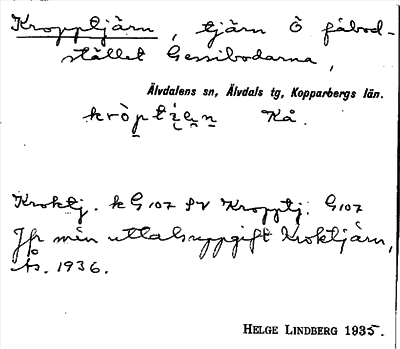 Kropptjärn, tjärn Ö fäbod-
stället Gessibodarna,
Älvdalens sn, Älvdals tg, Kopparbergs län.
Kå.
Kroktj. k G 107 Kropptj. G 107
Jfr min uttalsuppgift Kroktjärn,
Ås. 1936.
HELGE LINDBERG 1935.